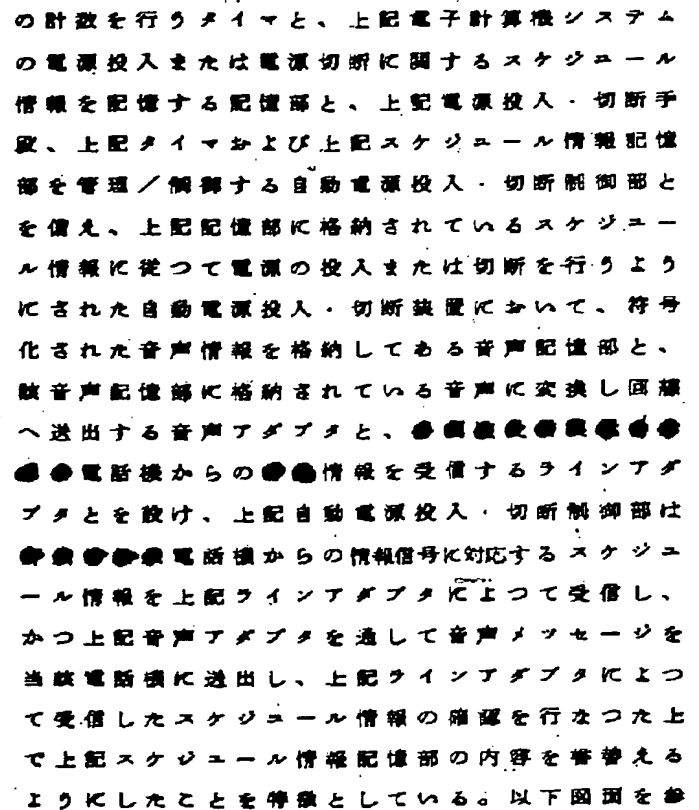 の計数を行うタイマと、上記電子計算機システム
の電源投入または電源切断に関するスケジュール
情報を記憶する記憶部と、上記電源投入・切断手
段、上記タイマおよび上記スケジュール情報記憶
部を管理／制御する自動電源投入・切断制御部と
を備え、上記記憶部に格納されているスケジュー
ル情報に従つて電源の投入または切断を行うよう
にされた自動電源投入・切断装置において、符号
化された音声情報を格納してある音声記憶部と、
該音声記憶部に格納されている音声に変換し回線
へ送出する音声アダプタと、
電話機からの情報を受信するラインアダ
プタとを設け、上記自動電源投入・切断制御部は
電話機からの情報信号に対応するスケジュ
ール情報を上記ラインアダプタによつて受信し、
かつ上記音声アダプタを通して音声メッセージを
当該電話機に送出し、上記ラインアダプタによつ
て受信したスケジュール情報の確認を行なつた上
で上記スケジュール情報記憶部の内容を書替える
ようにしたことを特徴としている。以下図面を参